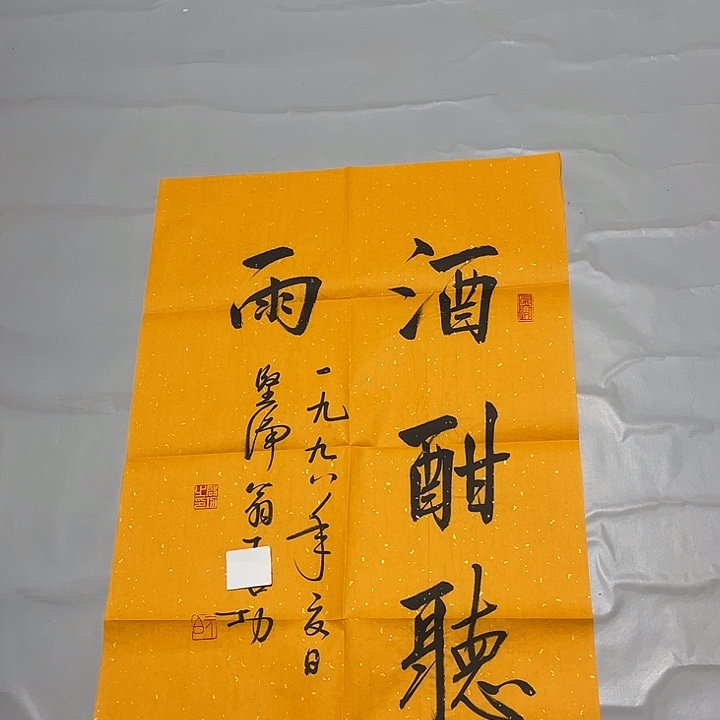 酒酣聽
雨
一九九八年夏日
堅淨翁功